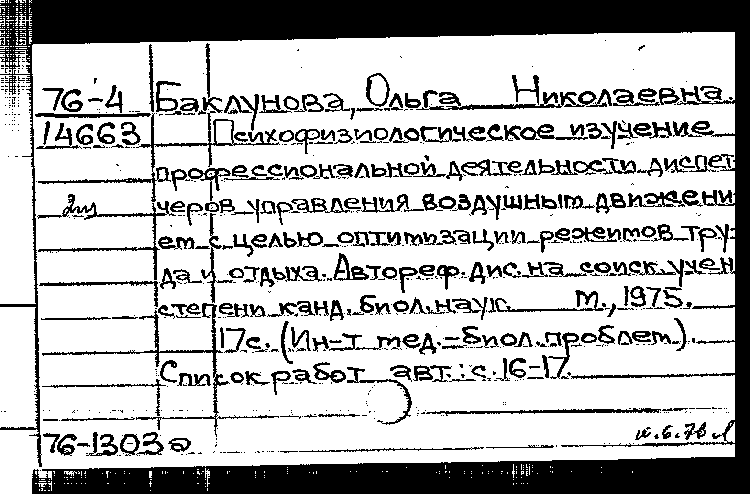 76-4 Баклунова, Ольга Николаевна.
14663 Психофизиологическое изучение
профессиональной деятельности диспет
черов управления воздушным движени
ем с целью оптимизации режимов тру-
да и отдыха. Автореф. дис. на соиск. учен
степени канд. биол. наук. М., 1975.
17с. (Ин-т мед.-биол. проблем).
Список работ авт.: с. 16-17.
76-1303а